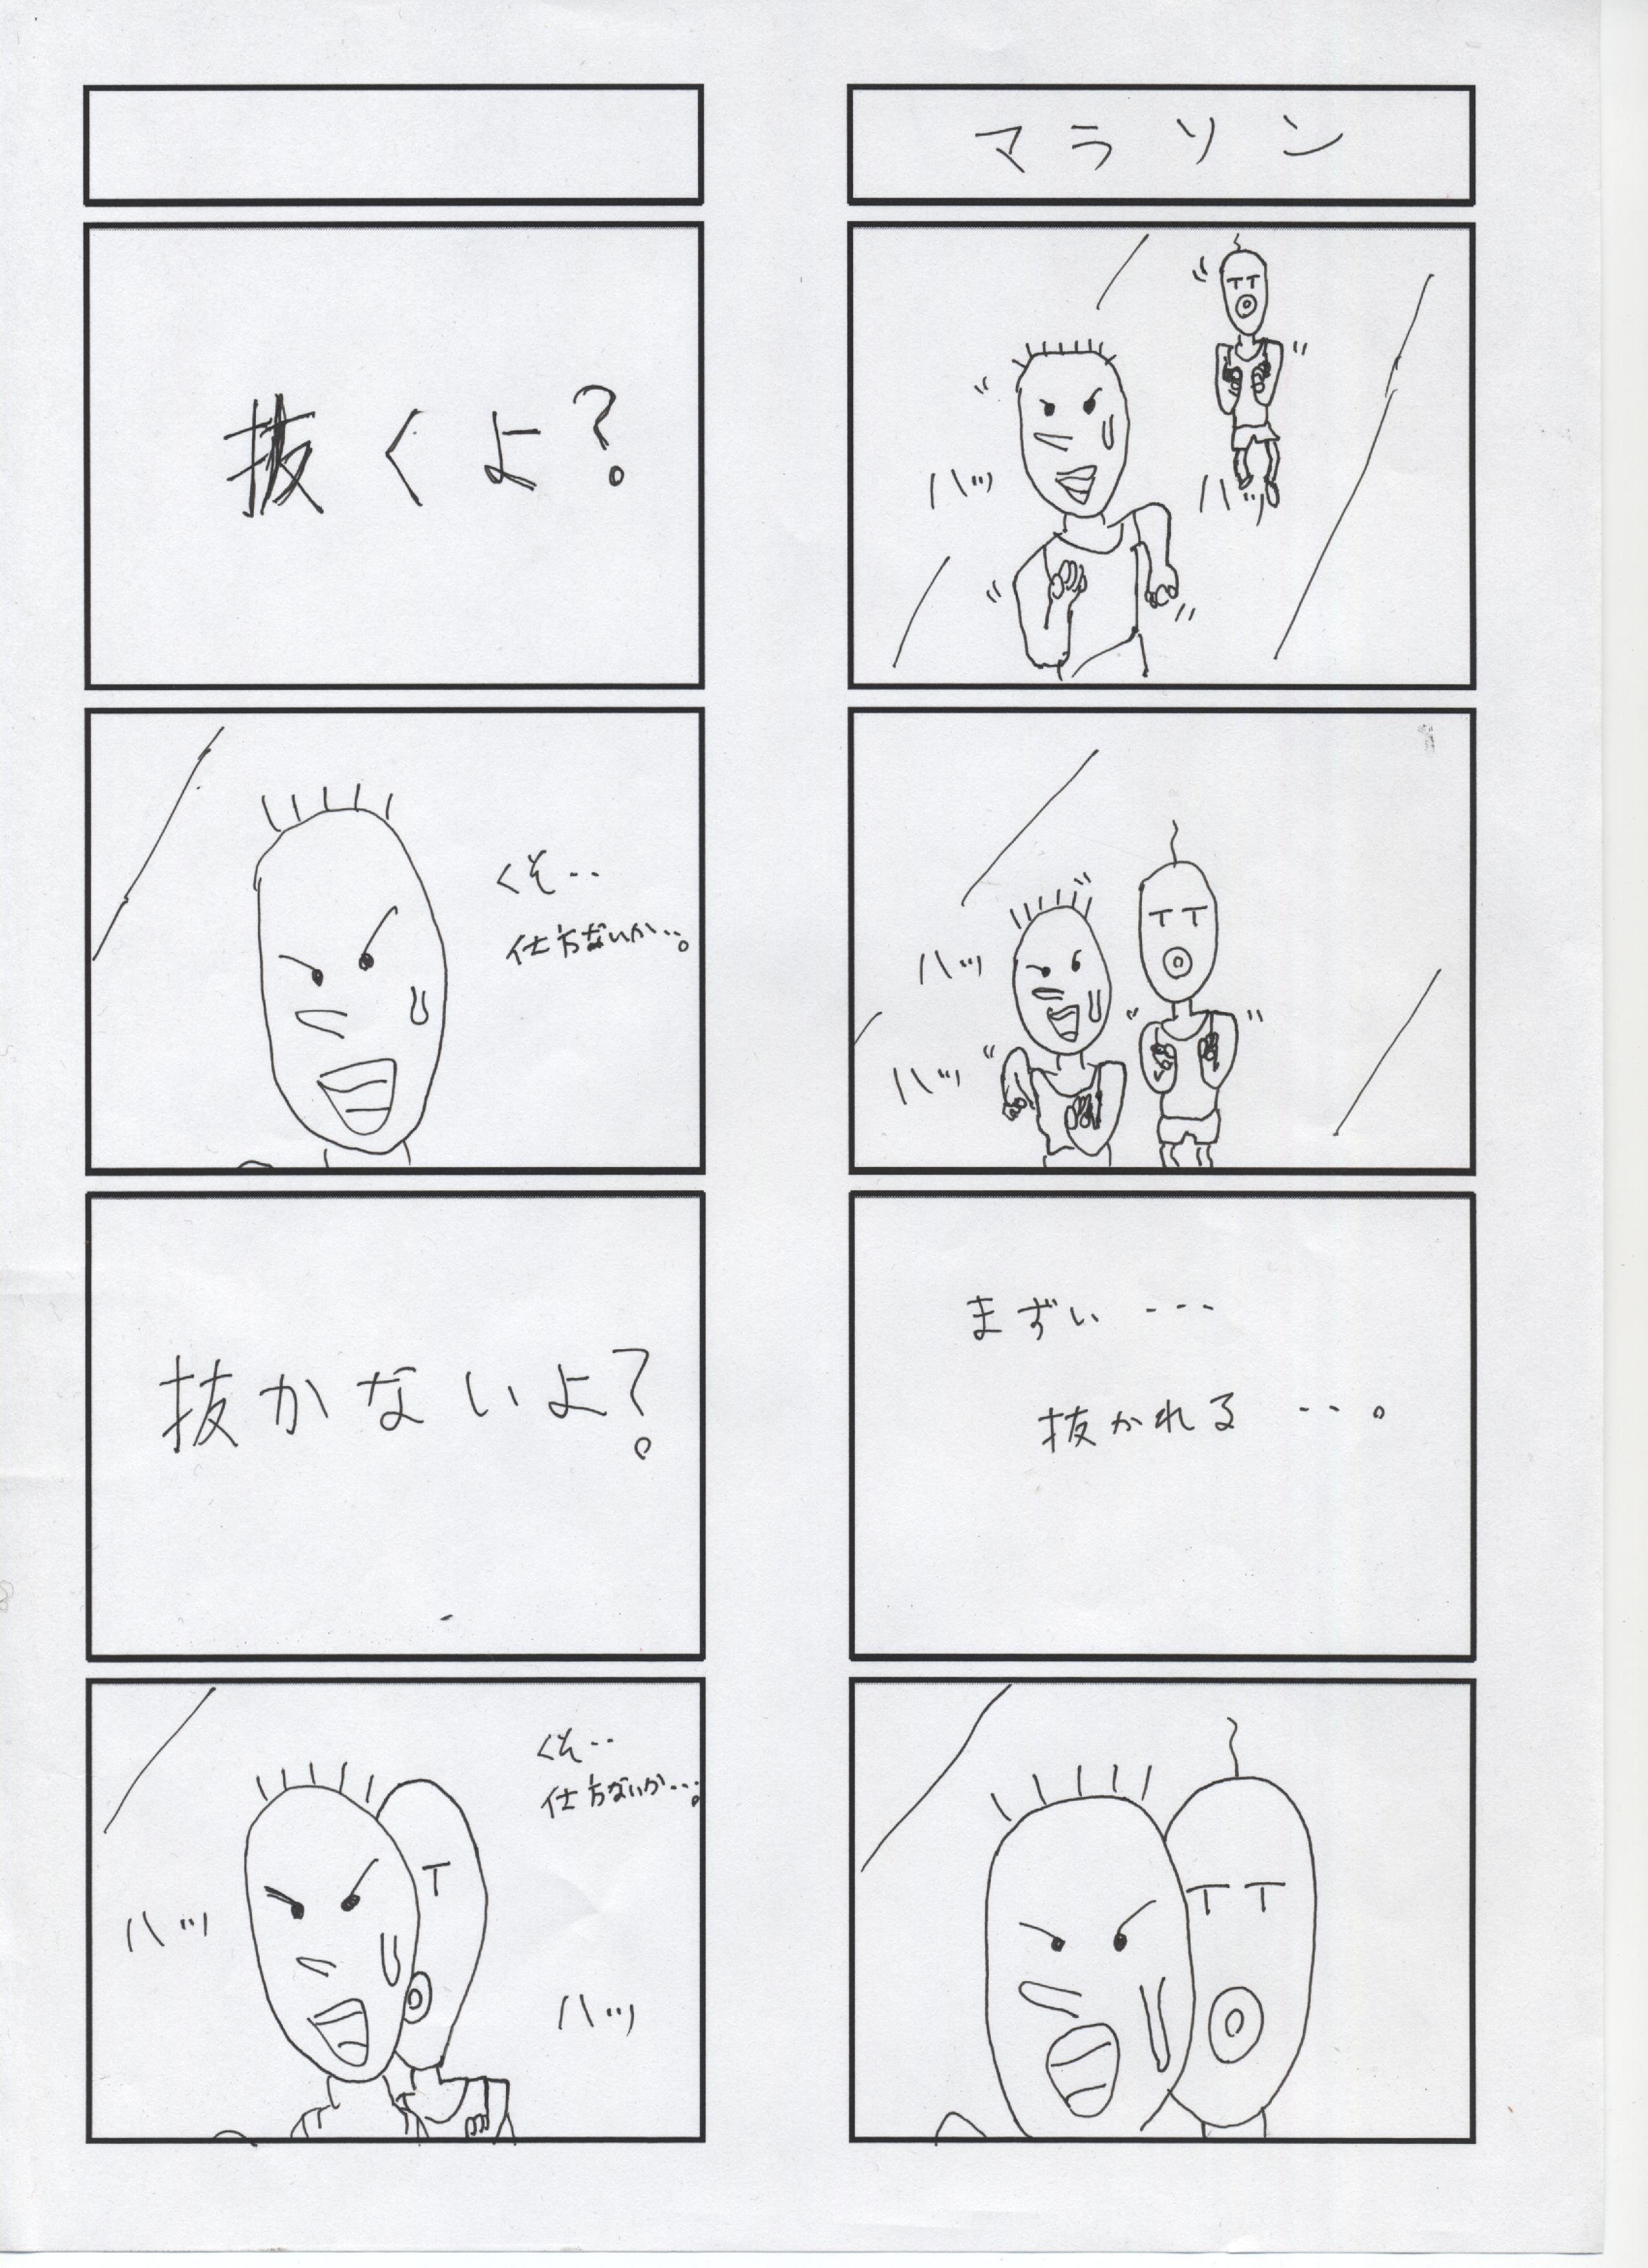 マラソン
ハッ
ハッ
ハッ
ハッ
まずい・・・
抜かれる・・。
抜くよ?
くそ・・
仕方ないか・・。
抜かないよ?
くそ・・
仕方ないか・・・。
ハッ
ハッ